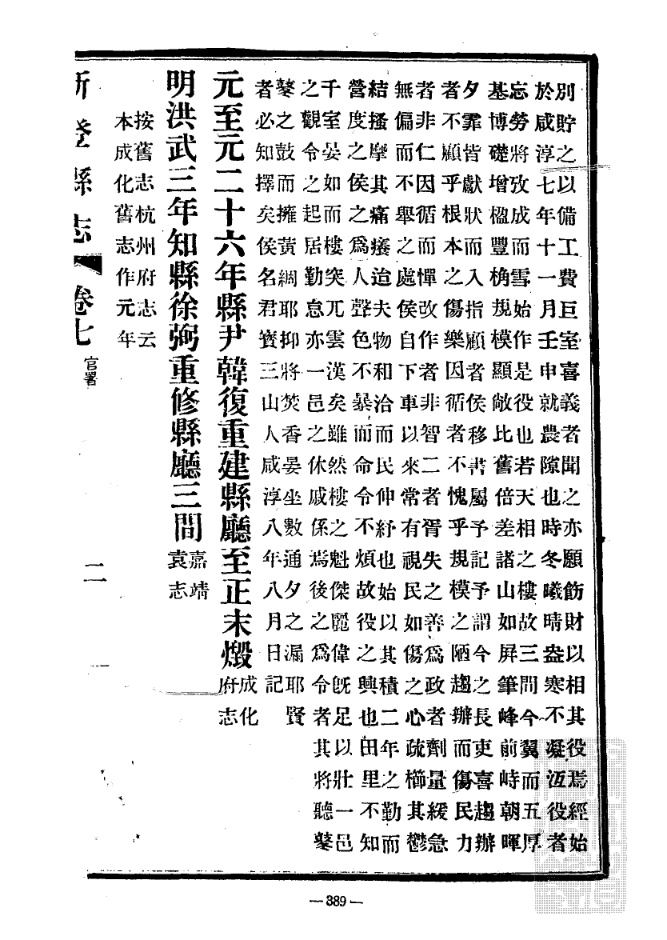 別貯之以備工費巨室喜義者聞之亦願飭財以相其役焉經始
於咸淳七年十一月壬申就農隙也時冬曦晴盎寒不凝沍役者
忘勞將攷成而雪始作是役也若天相之樓故三間今翼而五厚
基博礎增楹豐桷規模顯敞比舊倍差諸山如屏筆峰前峙朝暉
夕霏皆獻狀而入指顧者侯移書屬予記予謂今之長吏喜趨辦
者不顧乎根本之傷樂因循者不愧乎規模之陋趨辦而傷民力
者非仁因循而憚改作者非智二者胥失之善爲政者劑量緩急
無偏而不舉之處侯自下車以來常有視民如傷之心疏櫛其鬱
結搔摩其痛癢迨夫物和洽而民伸紓也始以其積二年之勤而
營度之侯之爲人聲色不暴而命令不煩故役之興也田里不知
千室晏如而樓突兀雲漢矣雖然樓之魁傑麗偉旣足以壯一邑
之觀令之起居勤怠亦一邑之休戚係焉後之爲令者其將聽鼕
鼕之鼓而擁黃紬耶抑將焚香晏坐數通夕之漏耶賢
者必知擇矣侯名君寶三山人咸淳八年八月日記
元至元二十六年縣尹韓復重建縣廳至正末燬成化
府志
明洪武三年知縣徐弼重修縣廳三間嘉靖
袁志
按舊志杭州府志云
本成化舊志作元年
新登縣志 卷七 官署 二
—389—